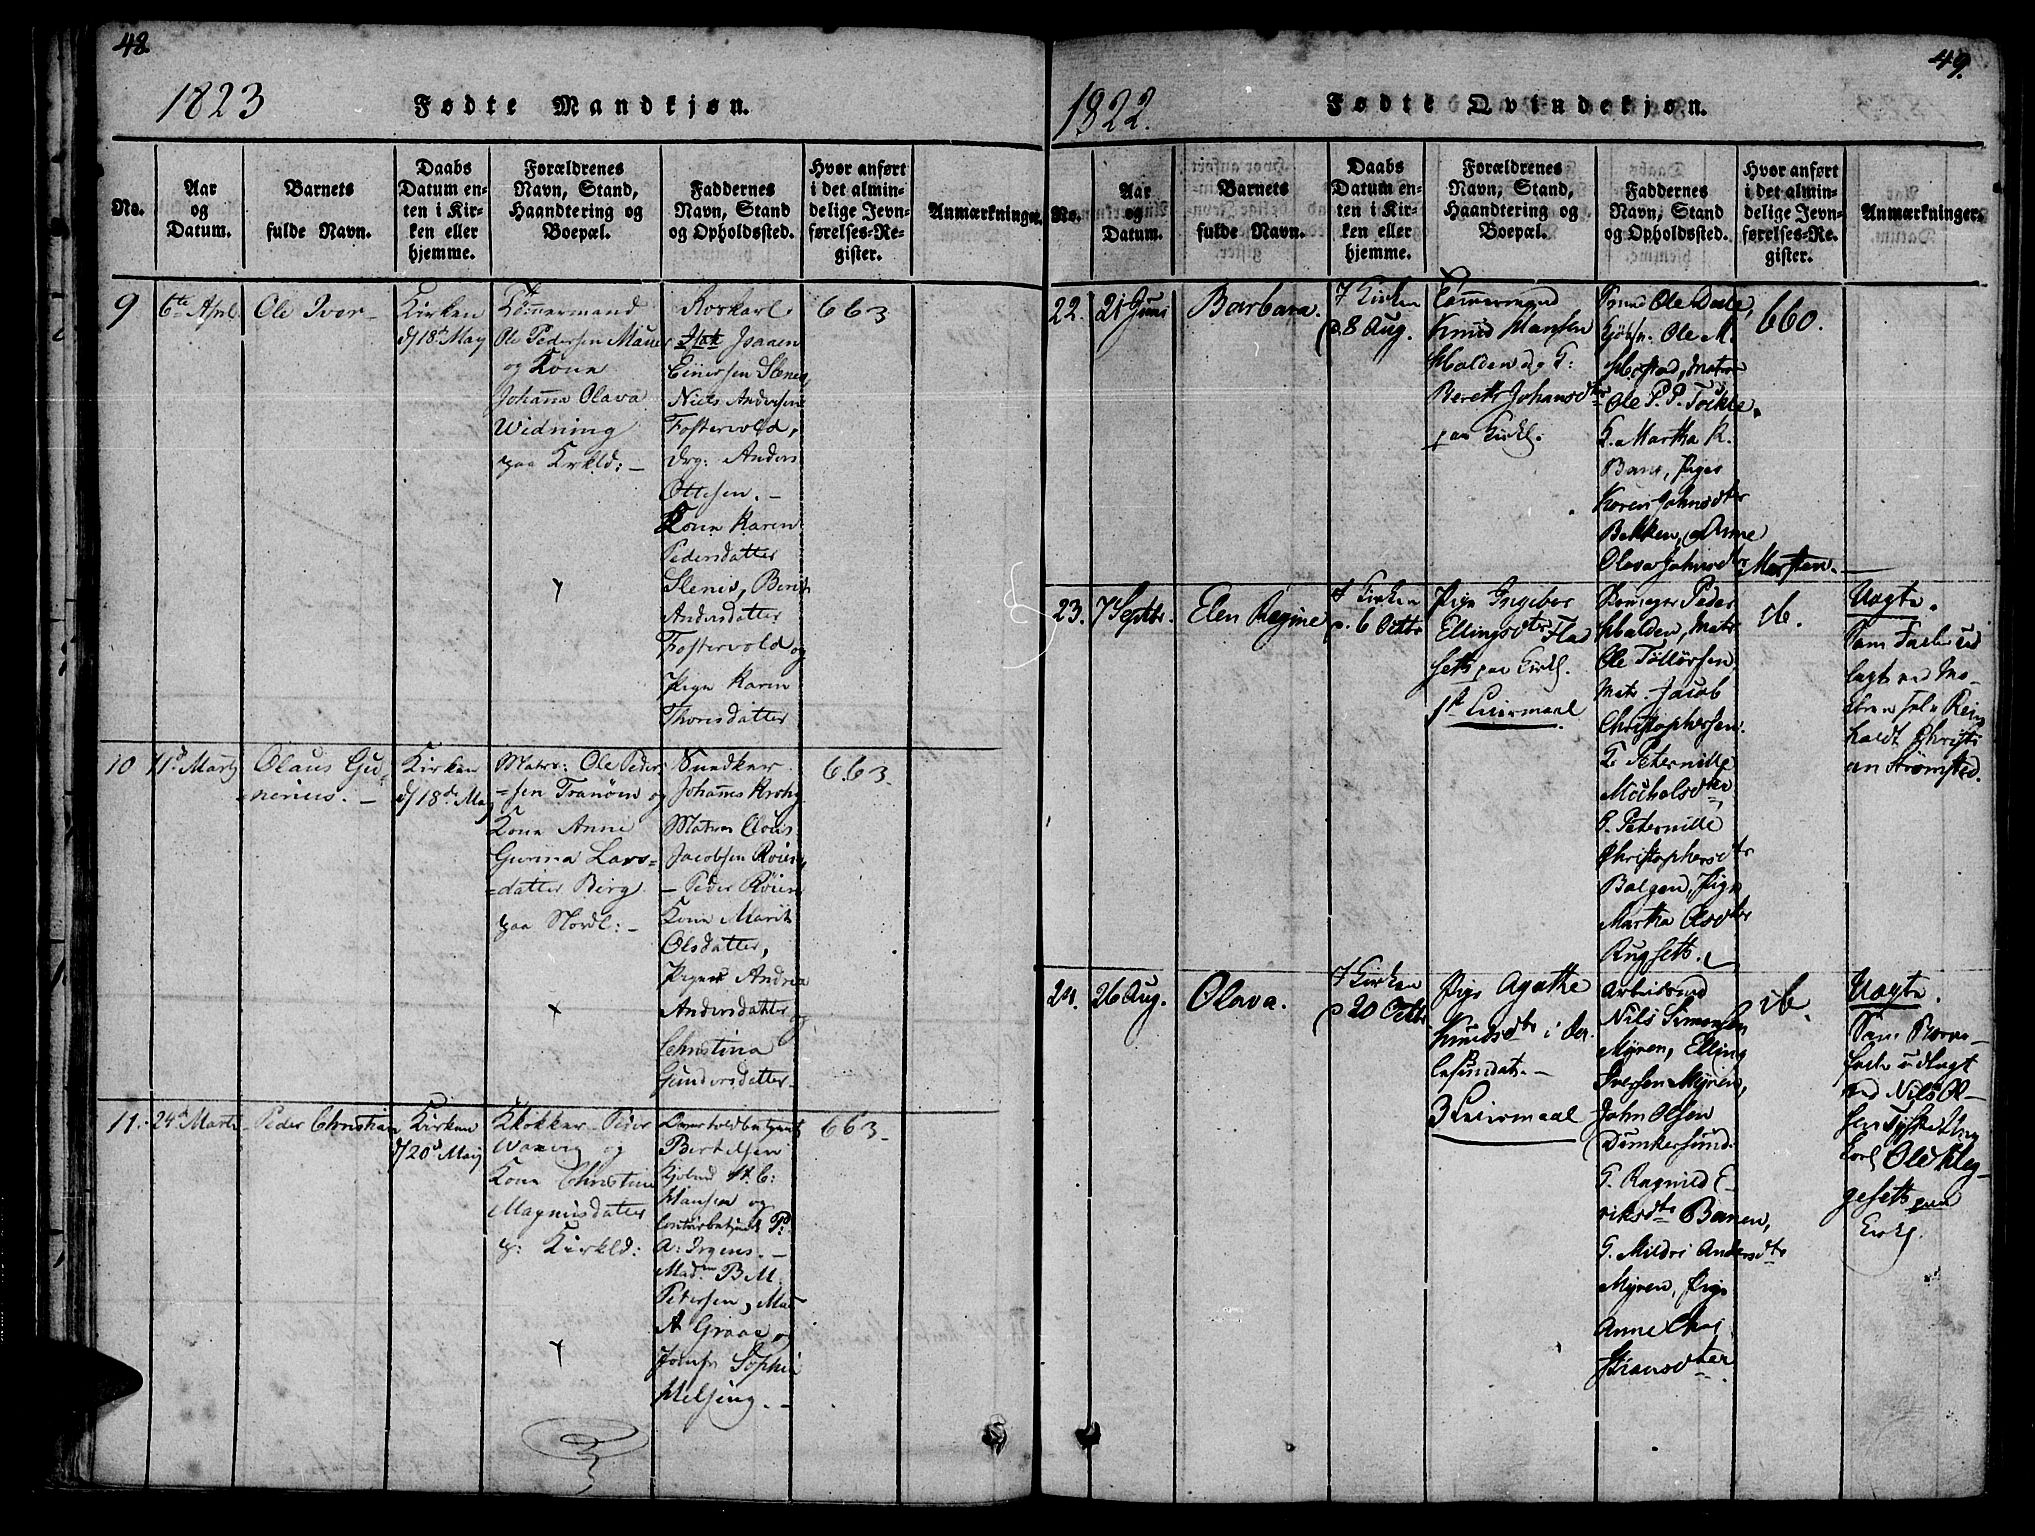 48.
1823
Fødte Mandkjøn.
No.
Aar
og
Datum.
Barnets
fulde Navn.
Daabs
Datum en-
ten i Kir-
ken eller
hjemme.
Forældrenes
Navn, Stand,
Haandtering og
Boepæl.
Faddernes
Navn, Stand
og Opholdssted.
Hvor anført
i det almin-
delige Jevn-
førelses-Re-
gister.
Anmærkninger.
9
6te April
Ole Iver
Kirken
d/18de May
Tömmermand
Ole Pedersen
og Kone
Johanna Olava
Widning
paa Krkld:
Isaach
Einersen Slenes,
Niels Andersen
Fostervold,
Drg: Anders
Ottesen.
Kone Karen
Pedersdatter
Slenes, Berit
Andersdatter
Fostervold og
Pige Karen
Thoresdatter
663
10
11te Martz
Olaus Gu-
nerius.
Kirken
d/18de May
Matrs: Ole Peder-
sen Tranöen og
Kone Anne
Gurina Lars-
datter Berg
paa Nordl:
Snedker
Johannes Krohg
Matros Clous
Jacobsen Röien,
Peder Röien
Kone Marit
Olsdatter,
Piger Andrea
Andersdatter og
Christina
Gundersdatter
663
11.
24de Martz
Peder Christian
Kirken
d/20de May
Klokker Peder
Waavig og
Kone Christine
Magnusdatter
p: Kirkld:
Overtoldbetjent
Bertelsen
Kjöbmd H. C:
Hansen og
P.
A: Irgens.
Madm B M.
Petersen, Mad
A Graae og
Jomfr Sophie
Helsing.
663
49.
1822.
Fødte Qvindekjøn.
No.
Aar
og
Datum.
Barnets
fulde Navn.
Daabs
Datum en-
ten i Kir-
ken eller
hjemme.
Forældrenes
Navn, Stand,
Haandtering og
Boepæl.
Faddernes
Navn, Stand
og Opholdssted.
Hvor anført
i det almin-
delige Jevn-
førelses-Re-
gister.
Anmærkninger.
22.
21 Juni
Barbara.
I Kirken
d. 8 Aug.
Tömmermand
Knud Hansen
Halden og G:
Bereth Johansdtr
paa Kirkl.
Ole Dale,
Ole M.
Matros
Ole P. P. Tökle.
K. Martha R.
Bane, Piger
Karen Johnsdtr
Bekken, og Anne
Olava Johnsdtr Morsten.
660.
23.
7 Septbr.
Elen Regine
I Kirken
d. 6 Octbr
Pige Ingebor
Ellingsdtr Flad
seth paa Kirkl.
1ste Leiermaal
Peder
Halden, Matr
Ole Tollörsen
Matr Jacob
Christophersen.
K. Peternille
Michelsdtr,
G. Peternille
Christophersdtr
Bolgen, Pige
Martha Olsdtr
Rugseth.
ib.
Uægte.
Som Fader ud
lagt
24.
26 Aug.
Olava.
I Kirken
d 20 Octbr
Pige Agathe
Knudsdtr i
3 Leiermaal
Arbeidsmd
Nils Simonsen
Myren, Elling
Iversen Myren,
John Olsen
Dunkersund
G. Ragnild E-
riksdtr Banen,
G. Mildri Andersdtr
Myren, Pige
Anne Chri
stiansdter
ib.
Uægte.
Som Barne-
fader udlagt
ved Nils Ol-
sen
Ole Kleg-
geseth paa
Kirkl.